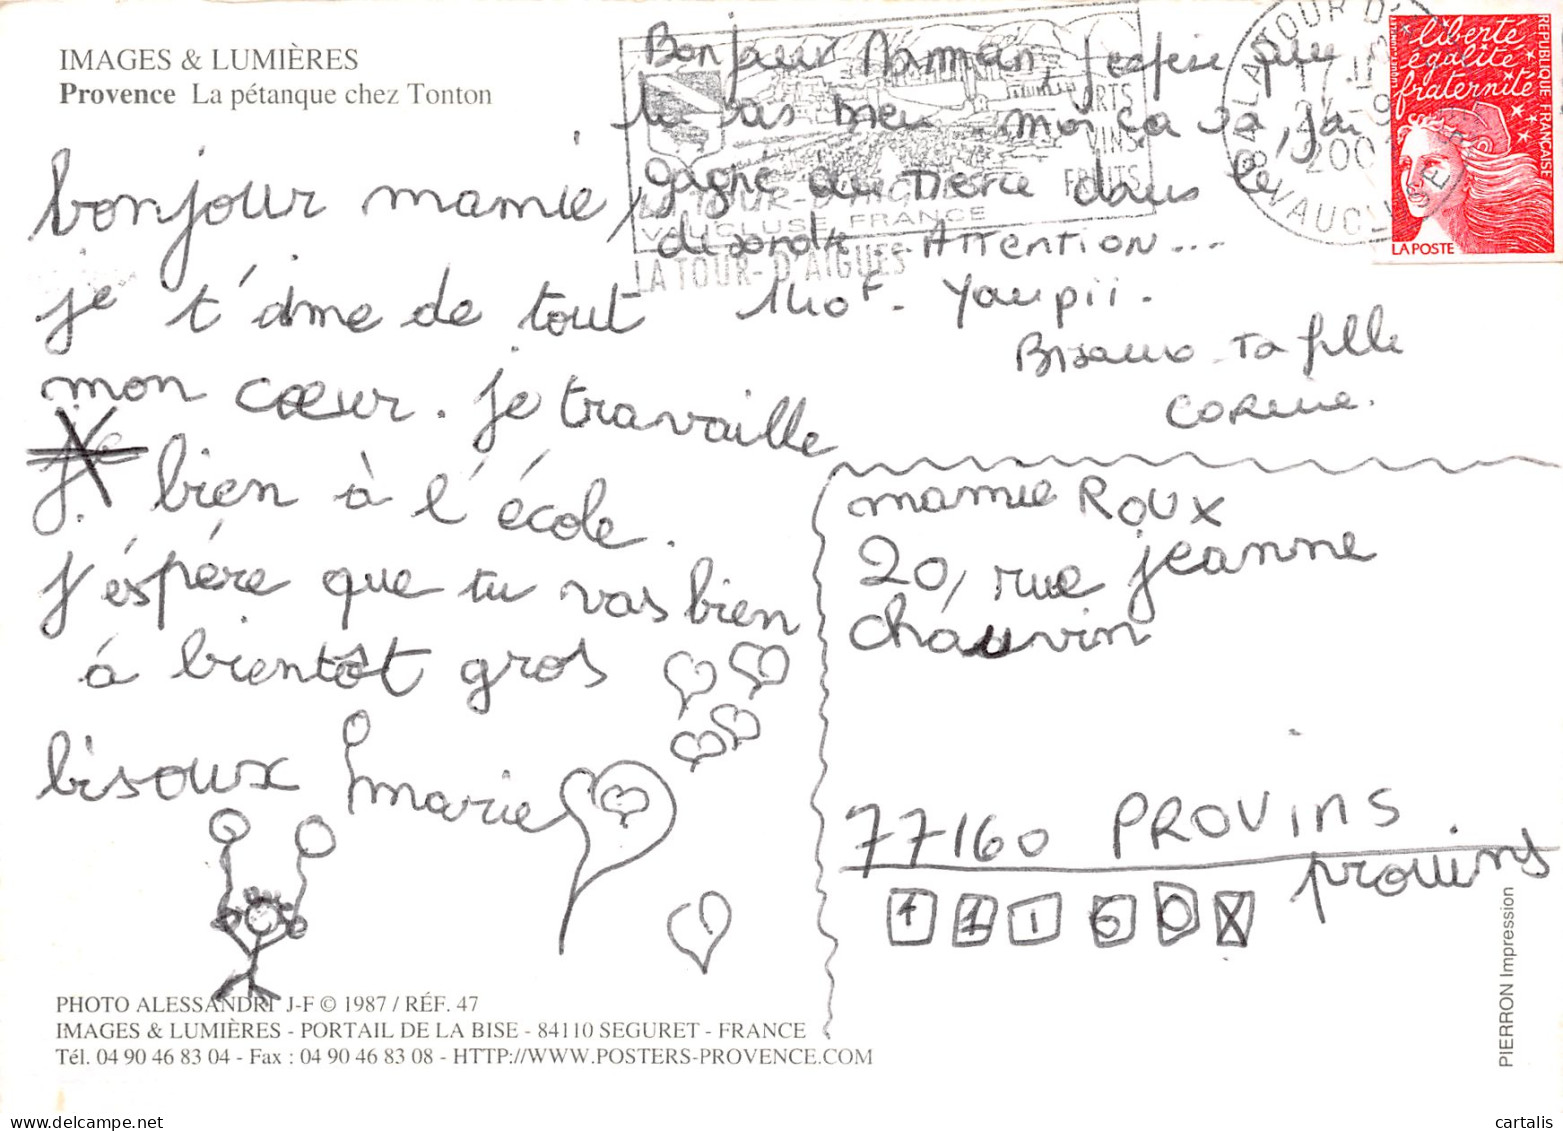 IMAGES & LUMIÈRES
Provence La pétanque chez Tonton
bonjour mamie,
je t'aime de tout
mon cœur. je travaille
bien à l'école.
j'éspére que tu vas bien
á bientôt gros
bisoux marie
Bonjour Maman, j'espère que
tu vas bien. moi ça va, j'ai
gagné au tiercé dans le
désordre... Attention...
140F. Youpii.
Bisous Ta fille
Corine.
ARTS
VINS
FRUITS
LA TOUR-D'AIGUES
VAUCLUSE FRANCE
LA TOUR-D'AIGUES
84 LA TOUR D'
17 H
9
200
VAUCLUSE
liberté
égalité
fraternité
RÉPUBLIQUE FRANÇAISE
LUQUET-JUMELET
RF
LA POSTE
mamie ROUX
20, rue jeanne
chauvin
77160 PROVINS
provins
PHOTO ALESSANDRI J-F © 1987 / RÉF. 47
IMAGES & LUMIÈRES - PORTAIL DE LA BISE - 84110 SEGURET - FRANCE
Tél. 04 90 46 83 04 - Fax : 04 90 46 83 08 - HTTP://WWW.POSTERS-PROVENCE.COM
PIERRON Impression
cartalis